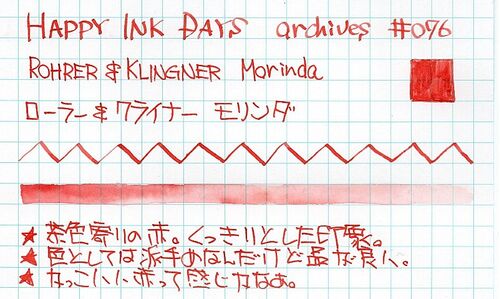 HAPPY INK DAYS archives #076
ROHRER & KLINGNER Morinda
ローラー&クライナー モリンダ
★ 茶色寄りの赤。くっきりとした印象。
★ 色としては派手めなんだけど品が良い。
★ かっこいい赤って感じかなぁ。